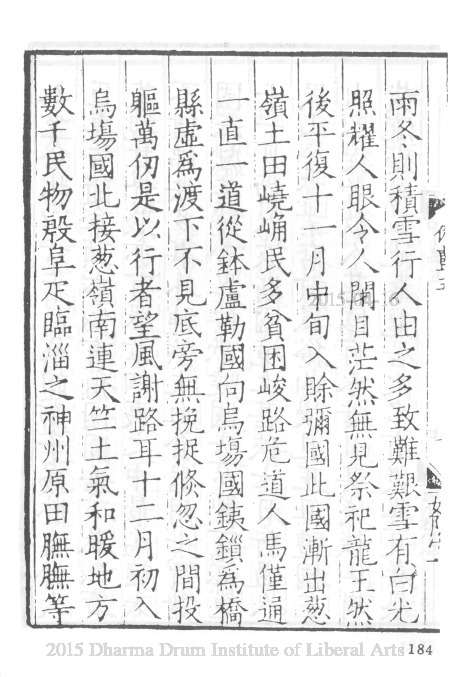 雨冬則積雪行人由之多致難艱雪有白光
照耀人眼令人閉目茫然無見祭祀龍王然
後平復十一月中旬入賒彌國此國漸出葱
嶺土田嶢崅民多貧困峻路危道人馬僅通
一直一道從鉢盧勒國向烏場國銕鎖爲橋
縣虛爲渡下不見底旁無挽捉倏忽之間投
軀萬仞是以行者望風謝路耳十二月初入
烏場國北接葱嶺南連天竺土氣和暖地方
數千民物殷阜疋臨淄之神州原田膴膴等
2015 Dharma Drum Institute of Liberal Arts
184